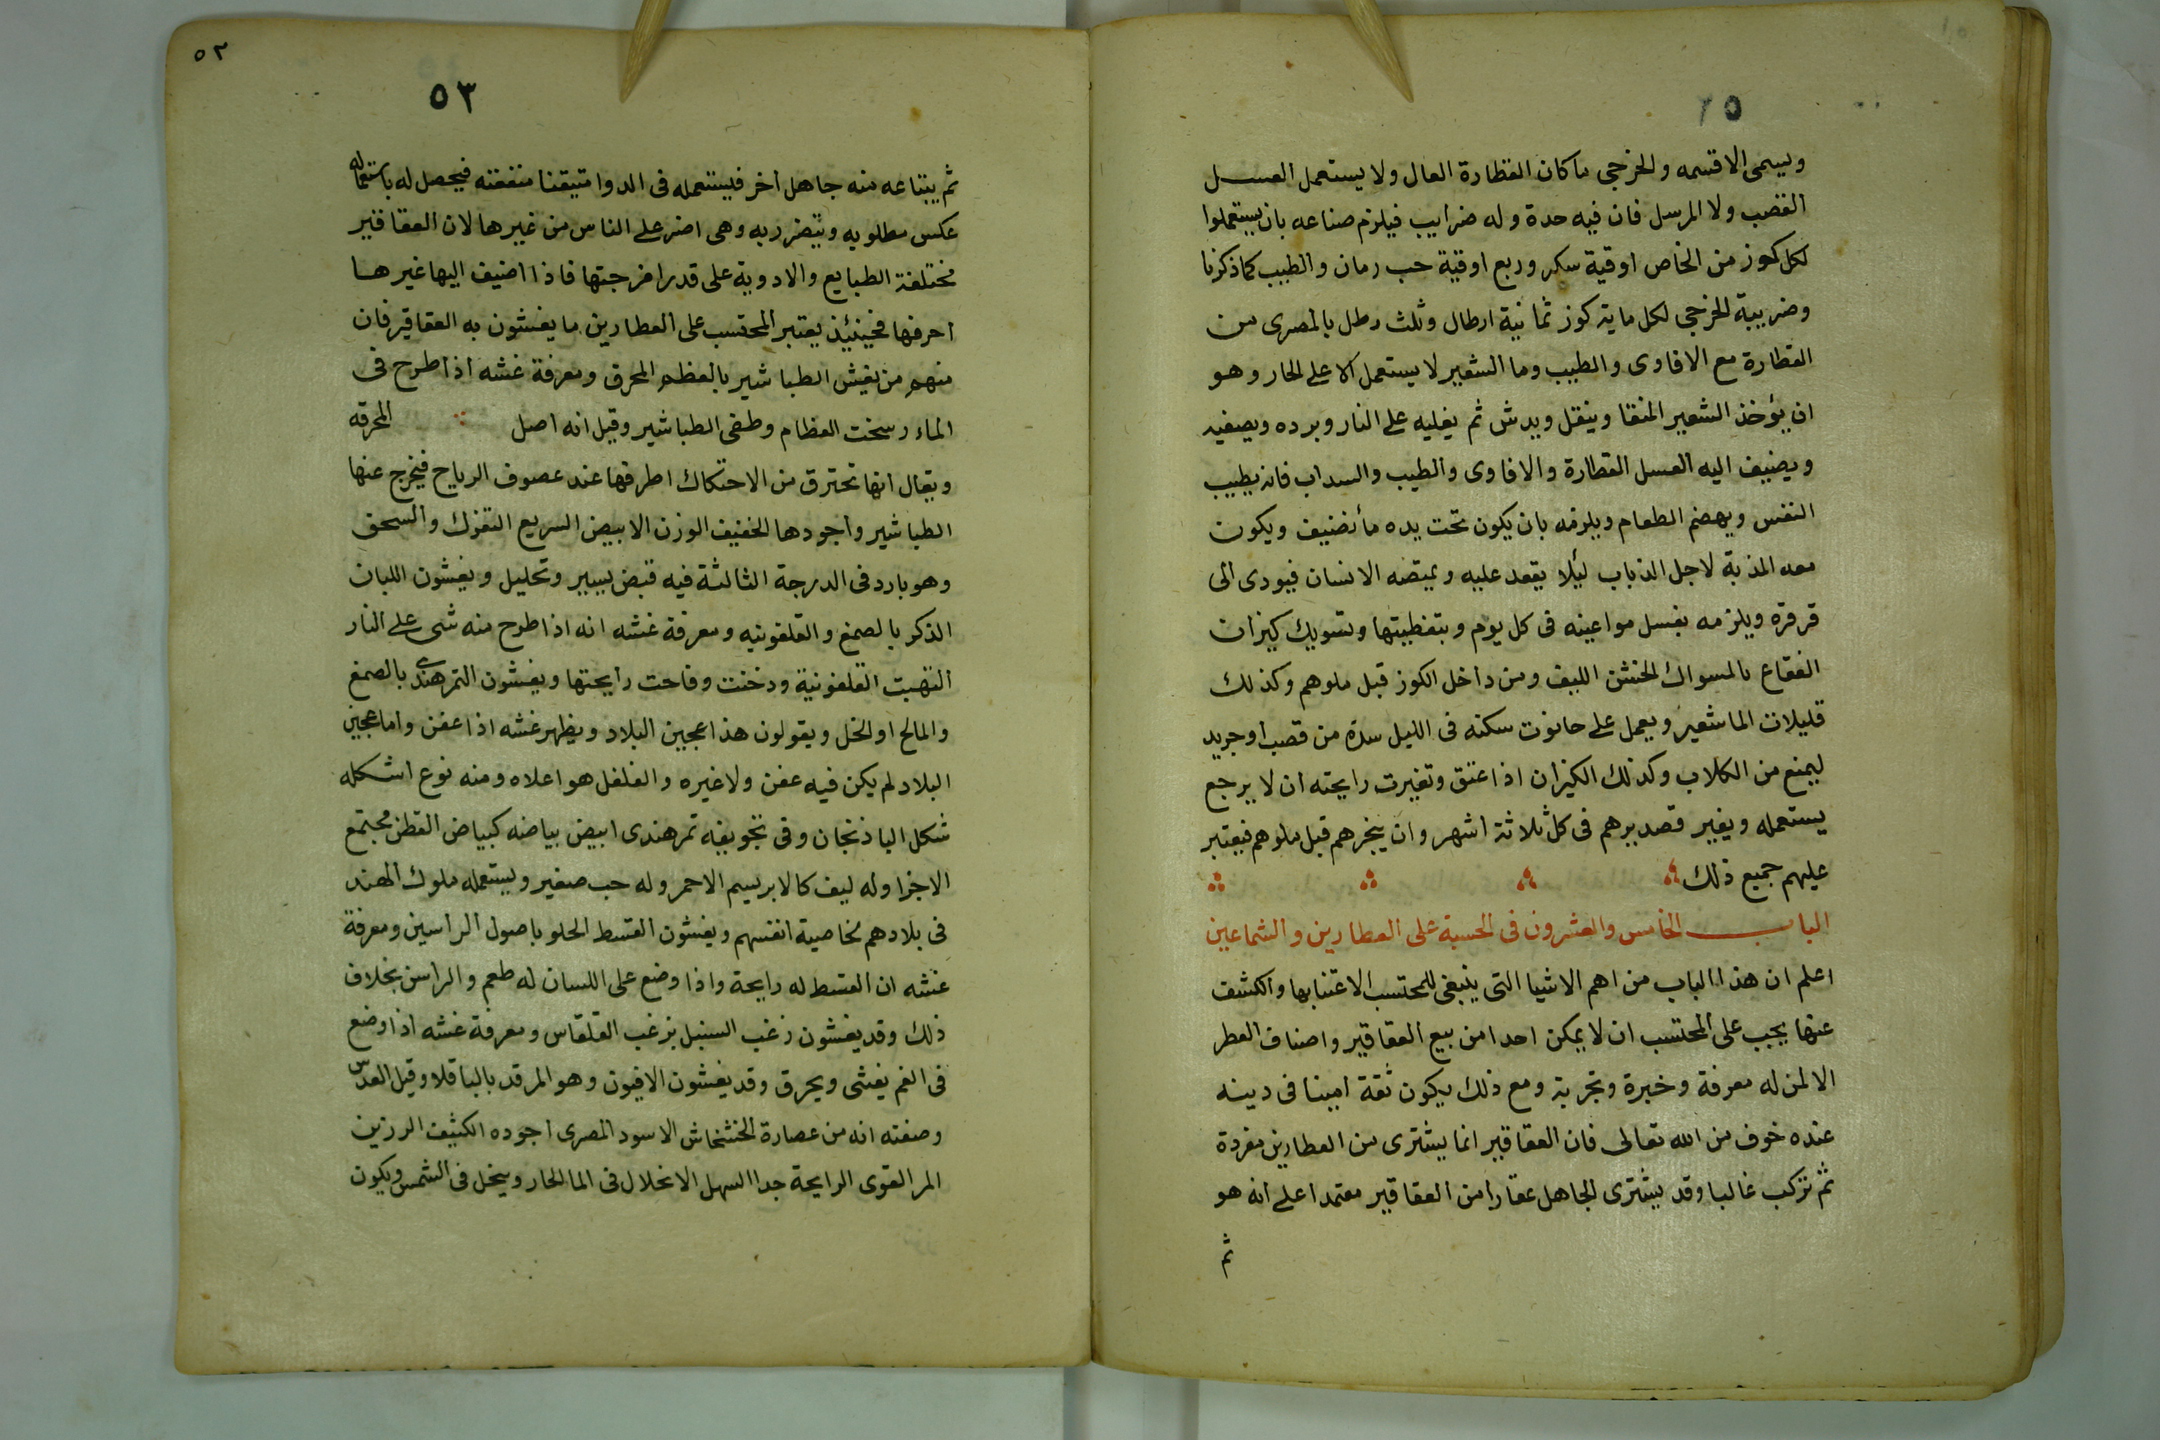 ويسمى الاقسمه والخرجى ماكان القطارة العال ولا يستعمل العسل
القصب ولا المرسل فان فيه حدة وله ضرايب فيلزم صناعه بان يستعملوا
لكل كوز من الخاص اوقية سكر وربع اوقية حب رمان والطيب كما ذكرنا
وضريبة الخرجى لكل ماية كوز ثمانية ارطال وثلث رطل بالمصرى من
القطارة مع الافاوى والطيب وما الشعير لا يستعمل الا على الحار وهو
ان يؤخذ الشعير المنقا وينقل ويدش ثم يغليه على النار وبرده ويصفيه
ويضيف اليه العسل القطارة والافاوى والطيب والسداب فانه يطيب
النفس ويهضم الطعام ويلزمه بان يكون تحت يده ما نضيف ويكون
معه المذبة لاجل الذباب ليلا يقعد عليه ويمتصه الانسان فيودى الى
قرقرة ويلزمه بغسل مواعينه فى كل يوم وبتغطيتها وتسويك كيزان
الفقاع بالمسواك الخشن الليف ومن داخل الكوز قبل ملوهم وكذلك
قليلات الماشعير ويعمل على حانوت سكنه فى الليل سدة من قصب اوجريد
ليمنع من الكلاب وكذلك الكيزان اذا عتق وتغيرت رايحته ان لا يرجع
يستعمله ويغير قصديرهم فى كل ثلاثة اشهر وان يبخرهم قبل ملوهم فيعتبر
عليهم جميع ذلك
الباب الخامس والعشرون فى الحسبة على العطارين والشماعين
اعلم ان هذا الباب من اهم الاشيا التى ينبغى للمحتسب الاعتنا بها والكشف
عنها يجب على المحتسب ان لا يمكن احدا من بيع العقاقير واصناف العطر
الا لمن له معرفة وخبرة وتجربة ومع ذلك يكون ثقة امينا فى دينه
عنده خوف من الله تعالى فان العقاقير انما يشترى من العطارين مفردة
ثم تركب غالبا وقد يشترى الجاهل عقارا من العقاقير معتمدا على انه هو
ثم
٥٣
٥٣
ثم يبتاعه منه جاهل اخر فيستعمله فى الدوا متيقنا منفعته فيحصل له باستعماله
عكس مطلوبه ويتضرر به وهى اضر على الناس من غيرها لان العقاقير
مختلفة الطبايع والادوية على قدر امزجتها فاذا اضيف اليها غيرها
احرفها فحينئذ يعتبر المحتسب على العطارين ما يغشون به العقاقير فان
منهم من يغش الطباشير بالعظم المحرق ومعرفة غشه اذا طرح فى
الماء رسخت العظام وطفى الطباشير وقيل انه اصل المحرقه
ويقال انها تحترق من الاحتكاك اطرفها عند عصوف الرياح فيخرج عنها
الطباشير واجودها الخفيف الوزن الابيض السريع التفرك والسحق
وهو بارد فى الدرجة الثالثة فيه قبض يسير وتحليل ويغشون اللبان
الذكر بالصمغ والقلفونيه ومعرفة غشه انه اذا طرح منه شى على النار
التهبت القلفونية ودخنت وفاحت رايحتها ويغشون التمرهندى بالصمغ
والمالح او الخل ويقولون هذا عجين البلاد ويظهر غشه اذا عفن واما عجين
البلاد لم يكن فيه عفن ولا غيره والفلفل هو اعلاه ومنه نوع اشكله
شكل الباذنجان وفى تجويفه تمرهندى ابيض بياضه كبياض القطن مجتمع
الاجزا وله ليف كالابريسم الاحمر وله حب صغير ويستعمله ملوك الهند
فى بلادهم لخاصية انفسهم ويغشون القسط الحلو باصول الراسين ومعرفة
غشه ان القسط له رايحة واذا وضع على اللسان له طعم والراسن بخلاف
ذلك وقد يغشون زغب السنبل بزغب القلقاس ومعرفة غشه اذا وضع
فى الفم يغشى ويحرق وقد يغشون الافيون وهو المرقد بالباقلا وقيل العدس
وصفته انه من عصارة الخشخاش الاسود المصرى اجوده الكثيف الرزين
المر القوى الرايحة جدا السهل الانحلال فى الما الحار وينحل فى الشمس ويكون